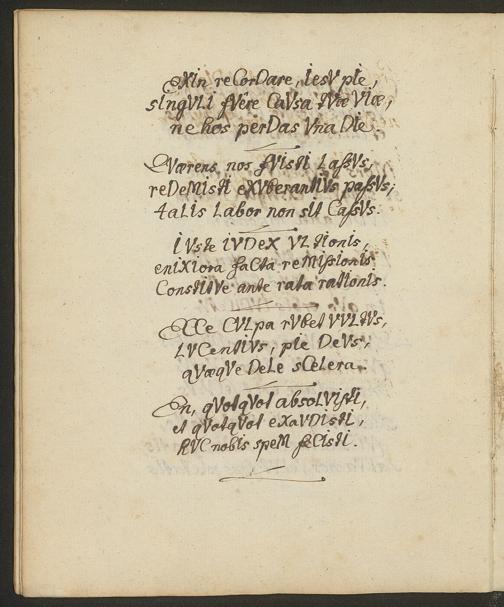 EXin reCorDare, IesV pIe,
sIngVLI fVêre CaVsa tVæ VIæ,
ne hos perDas Vna DIe.
QVærens nos fVIstI LassVs,
reDeMIstI eXVberantIVs passVs;
talIs Labor non sIt CassVs.
IVste IVDeX VLtIonIs,
enIXIora faCta reMIssIonIs
ConstItVe ante rata ratIonIs.
CVLpa rVbet VVLtVs,
LVCentIVs, pIe DeVs,
qVæqVe DeLe sCeLera.
En, qVotqVot absoLVIstI,
et qVotqVot eXaVDIstI,
hVC nobIs speM feCIstI.